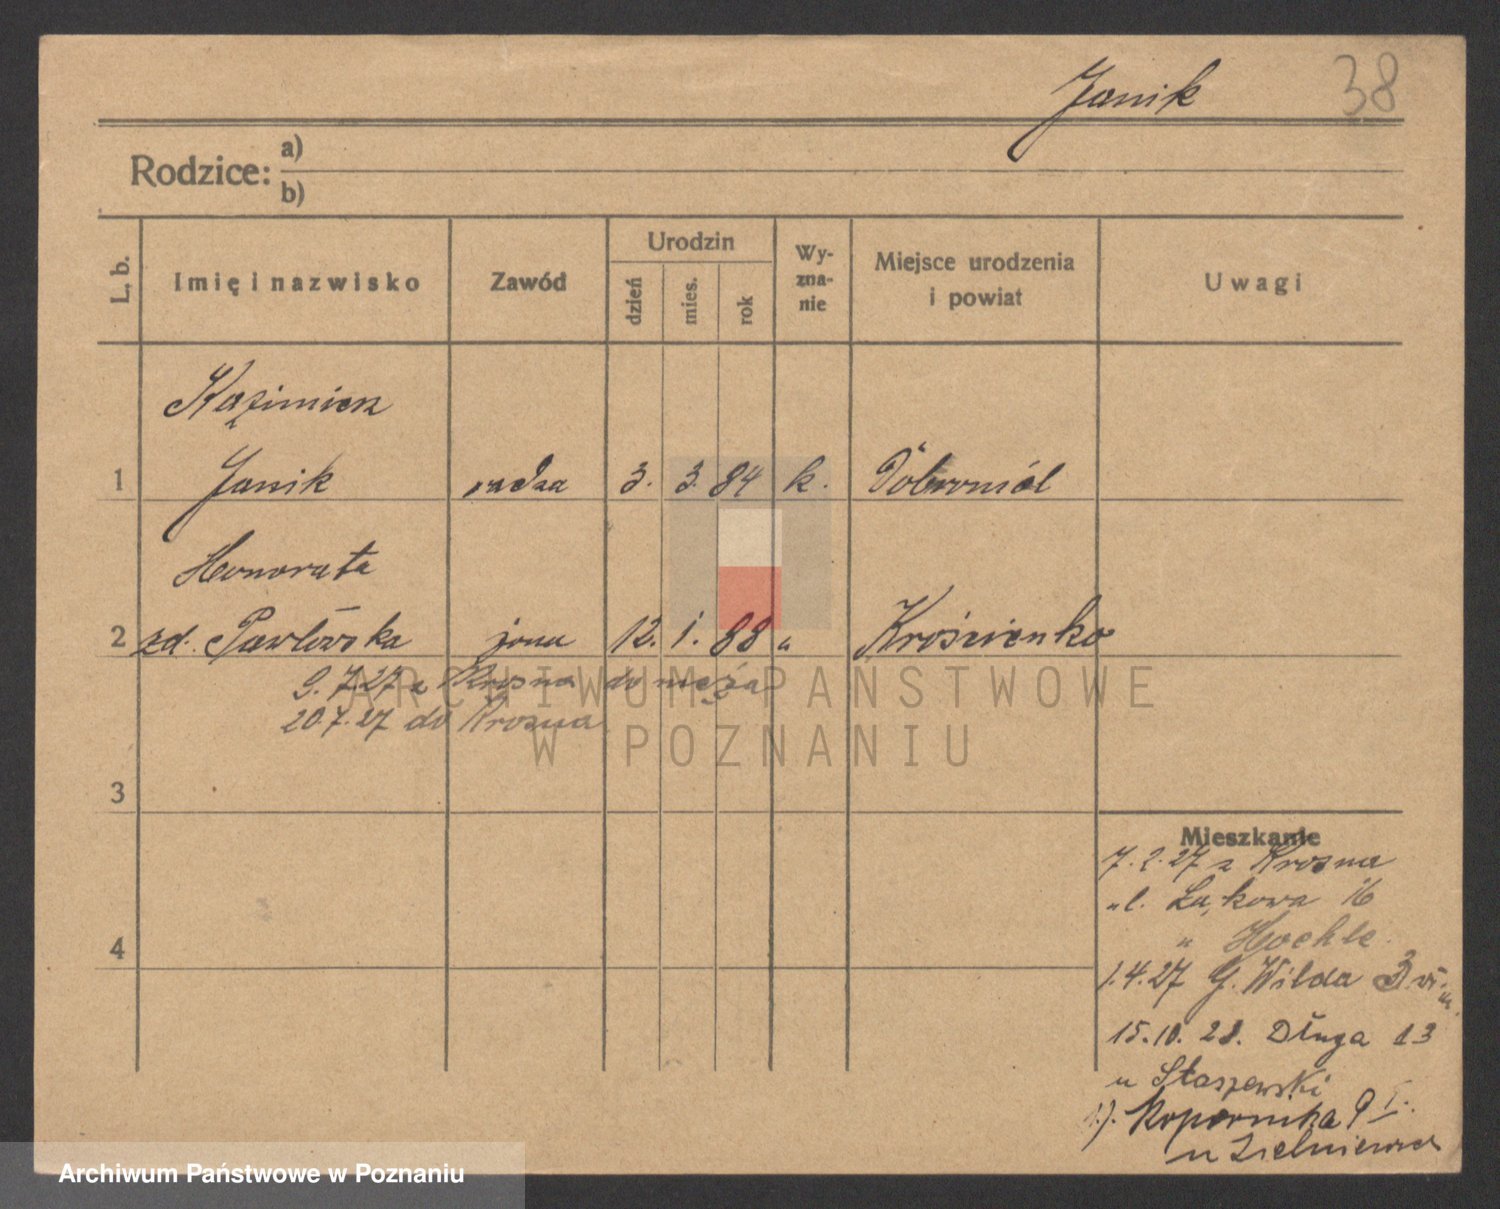 Janik 38
Rodzice: a)
b)
L. b. Imię i nazwisko Zawód Urodzin dzień mies. rok Wy-zna-nie Miejsce urodzenia i powiat Uwagi
Kazimierz
1 Janik 3. 3. 84 k. Dobromiel
Honorata
2 zd. Pawłowska żona 12. 1. 88 " Krościenko
9.7.27 z Krosna do męża
20.7.27 do Krosna
ARCHIWUM PAŃSTWOWE
W POZNANIU
3
4
Mieszkanie
7.2.27 z Krosna
ul. Łąkowa 16
u Hoehle
1.4.27 G. Wilda 3
15.10.28. Długa 13
u Staszewski
Kopernika 9 I.
u
Archiwum Państwowe w Poznaniu